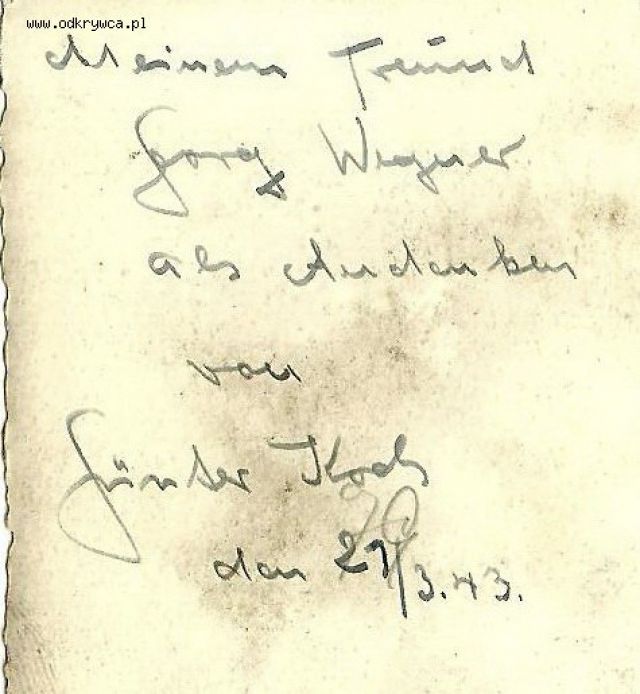 www.odkrywca.pl
Meinem Freund
Georg Wegner
als Andenken
von
Günter Koch
den 21/3.43.